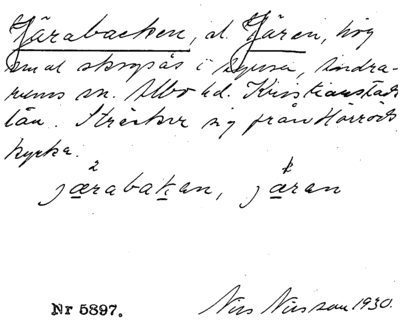 Järabacken, el. Jären, hög
smal skogsås i byma, Andra-
rums sn. Albo hd. Kristianstads
län. Sträcker sig från Hörröds
kyrka.
järabakan, järan
Nr 5897. Nils Nilsson 1930.